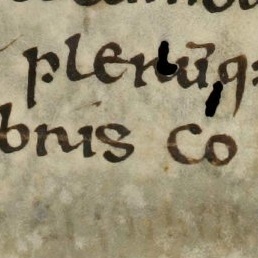 plerūq:
brus co